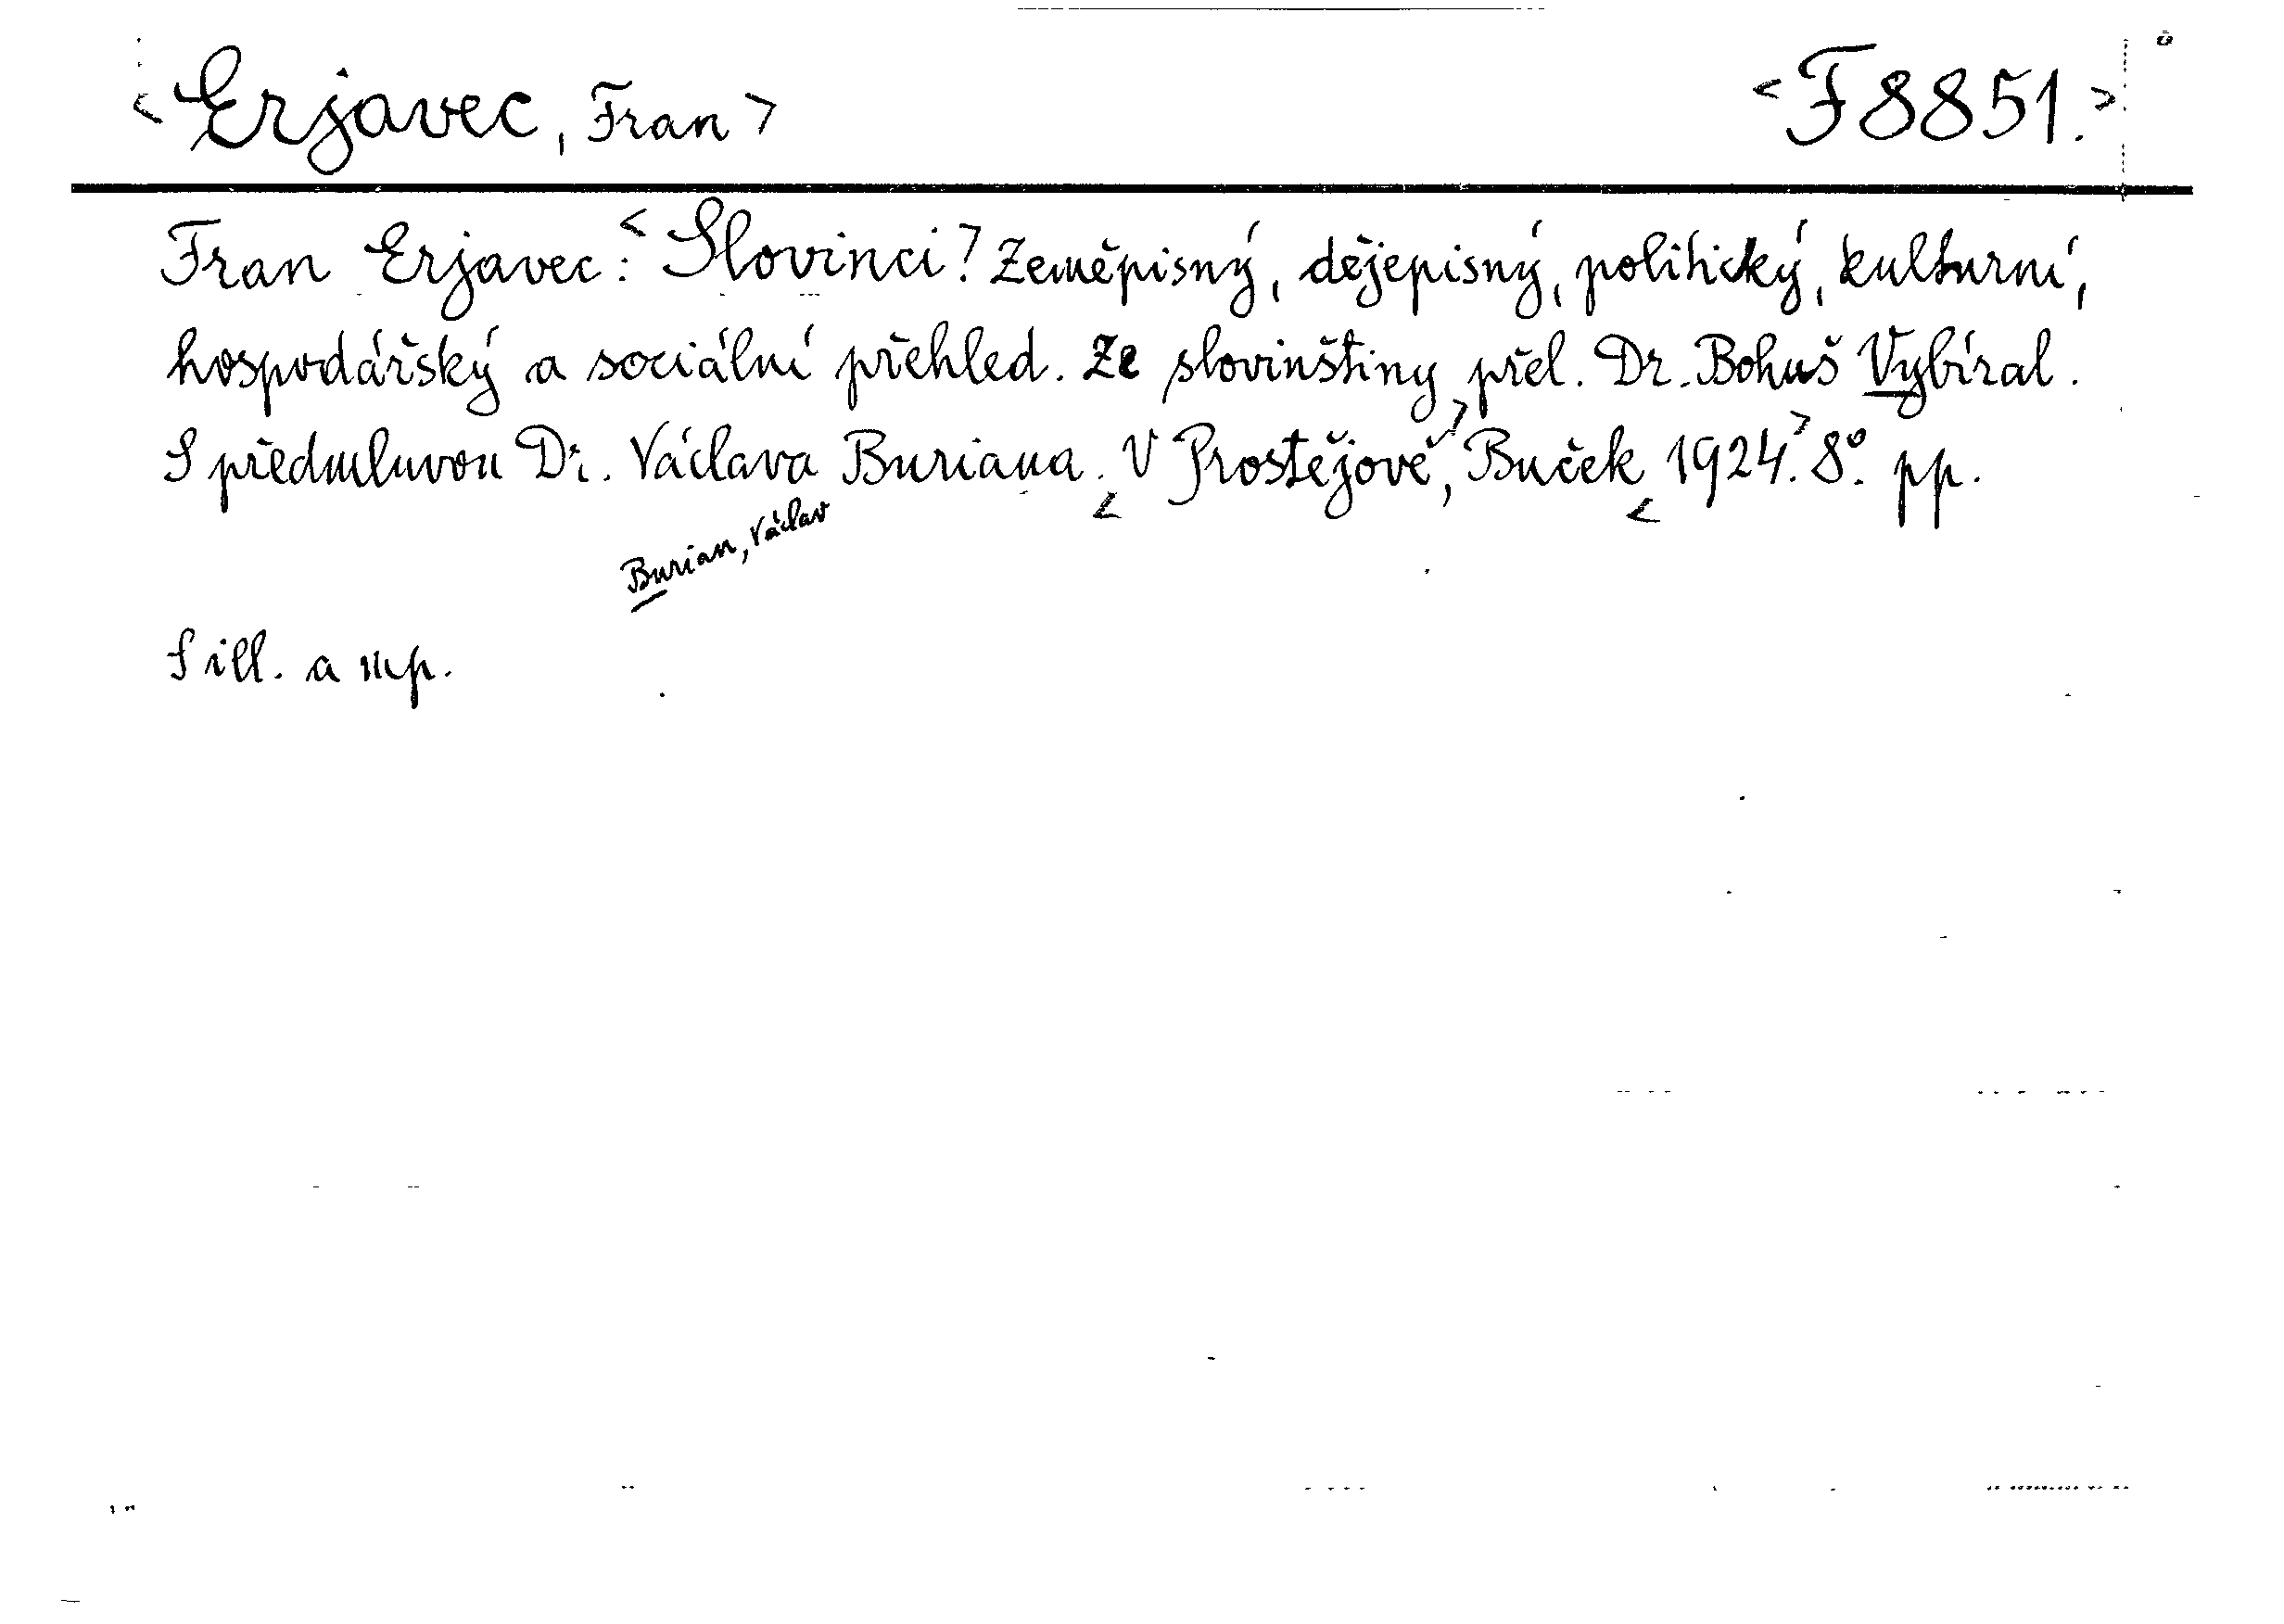 <Erjavec, Fran> <F 8851.>
Fran Erjavec: <Slovinci> Zeměpisný, dějepisný, politický, kulturní,
hospodářský a sociální přehled. Ze slovinštiny přel. Dr. Bohuš Vybíral.
S předmluvou Dr. Václava Buriana. <V Prostějově>, Buček <1924.> 8°. pp.
Burian, Václav
S ill. a mp.